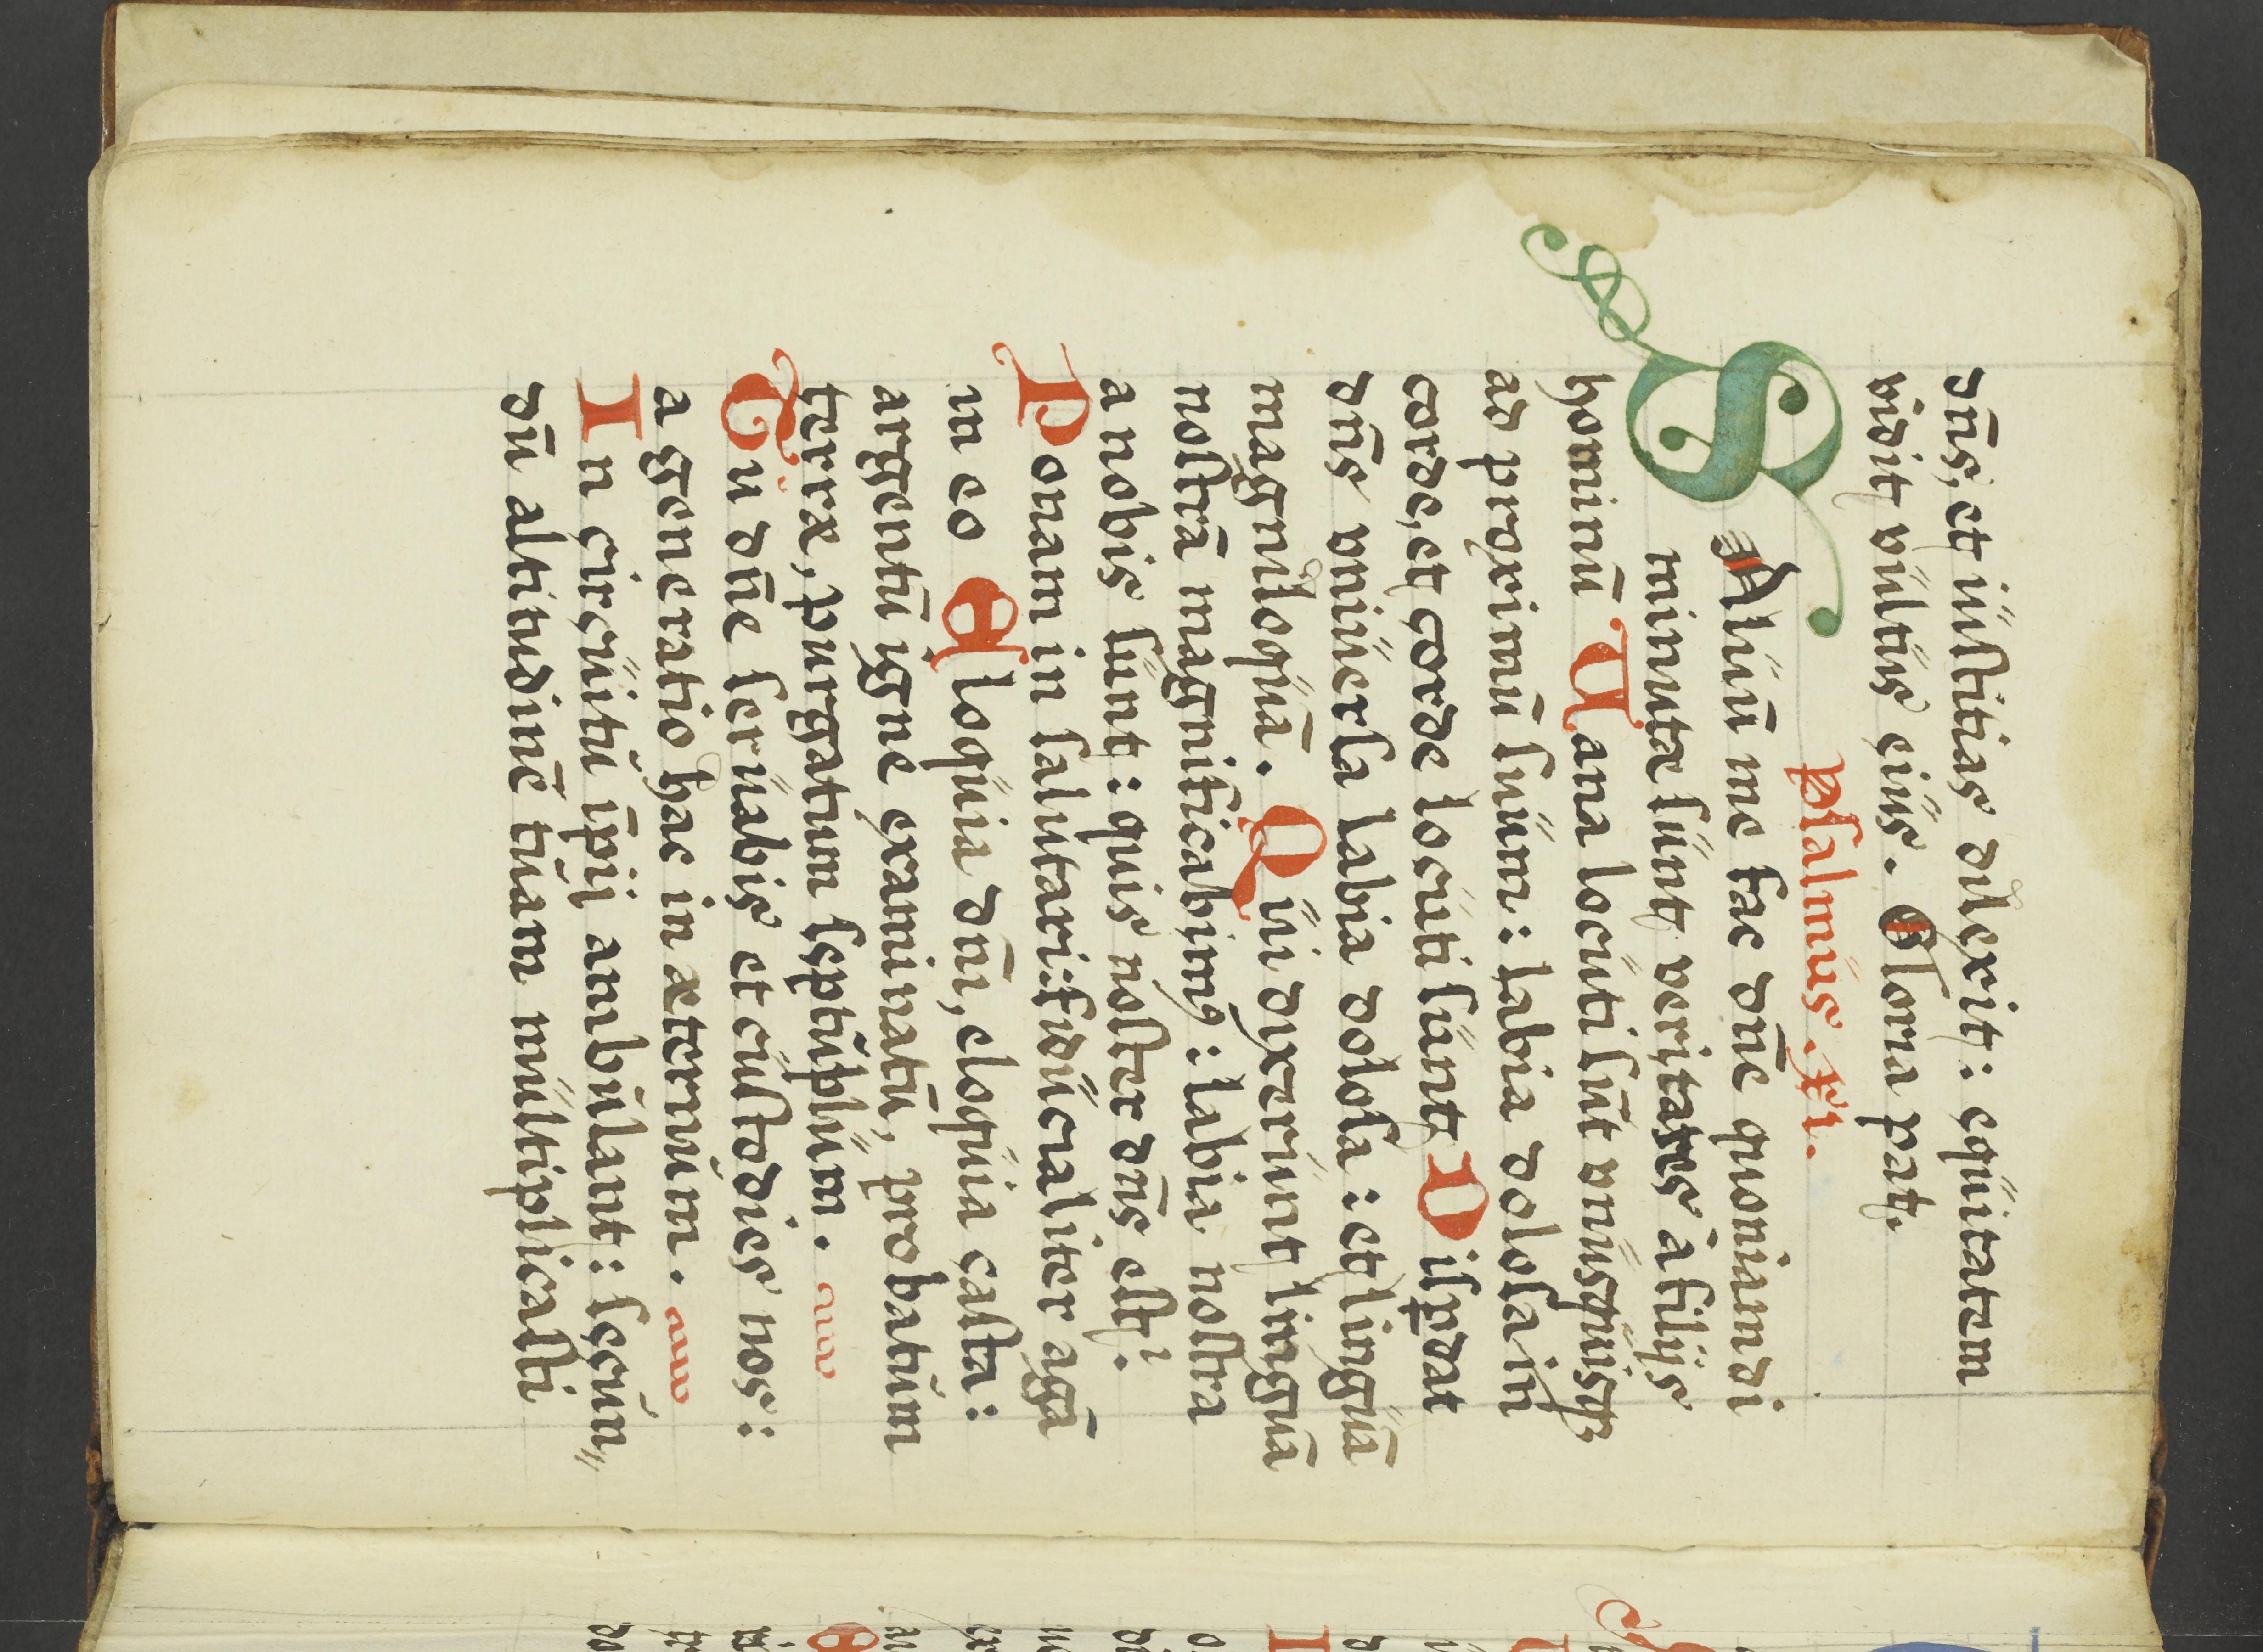 dn̄s, et iustitias dilexit: equitatem
vidit vultus eius. Gloria pat.
psalmus. xi.
SAluū me fac dn̄e quoniam di
minutæ sunt veritates a filijs
hominū Uana locuti sūt vnusquisqꝫ
ad proximū suum: labia dolosa in
corde, et corde locuti sunt Disꝑdat
dn̄s vniuersa labia dolosa: et linguā
magniloquā. Qui dixerunt linguā
nostrā magnificabimꝰ: labia nostra
a nobis sunt: quis noster dn̄s est.
Ponam in salutari: fiducialiter agā
in eo Eloquia dn̄i, eloquia casta:
argentū igne examinatū, probatum
terræ, purgatum septuplum.
Tu dn̄e seruabis et custodies nos:
a generatio hac in æternum.
In circuitu īpij ambulant: secun〃
dū altitudinē tuam multiplicasti